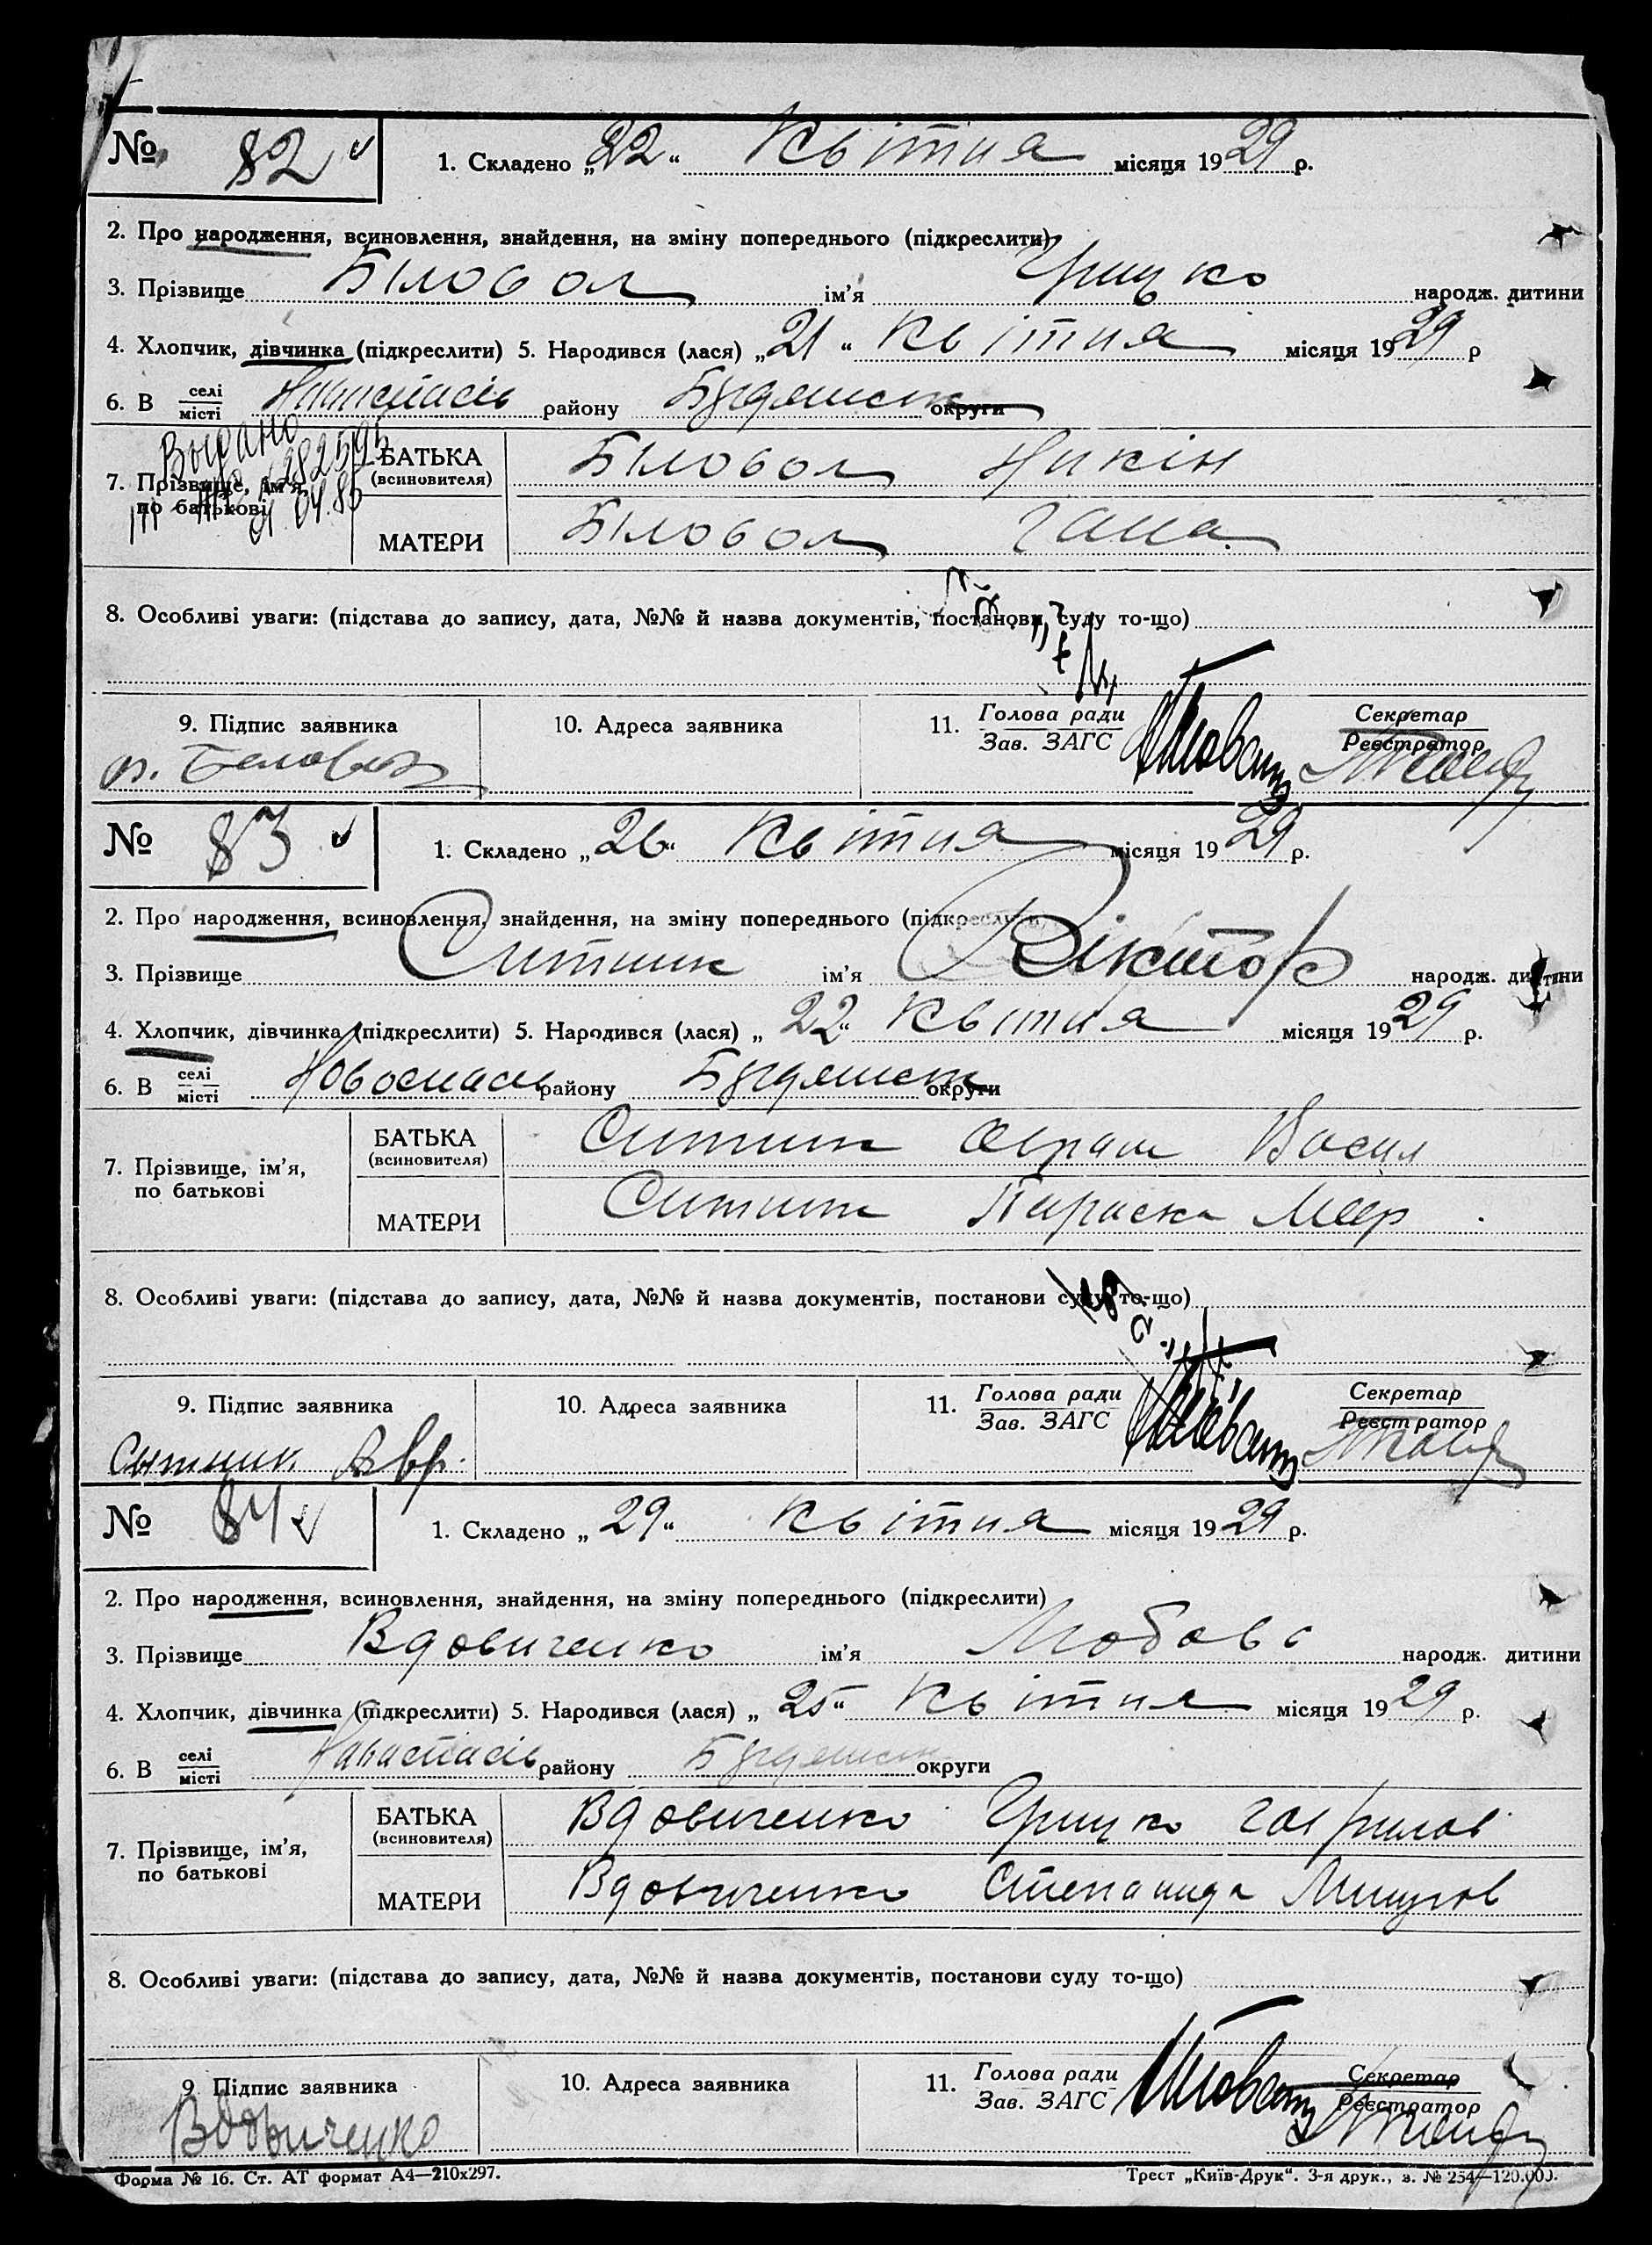 № 82 1. Складено „22“ Квітня місяця 1929 р.
2. Про народження, всиновлення, знайдення, на зміну попереднього (підкреслити)
3. Прізвище Біловол ім'я Грицко народж. дитини
4. Хлопчик, дівчинка (підкреслити) 5. Народився (лася) „21“ Квітня місяця 1929 р
6. В селі/місті району округи
Выдано
282595
7. Прізвище, ім'я, по батькові
БАТЬКА (всиновителя) Біловол Никін
МАТЕРИ Біловол Гана
8. Особливі уваги: (підстава до запису, дата, №№ й назва документів, постанови суду то-що)
9. Підпис заявника 10. Адреса заявника 11. Голова ради/Зав. ЗАГС Секретар/Реєстратор
№ 83 1. Складено „26“ Квітня місяця 1929 р.
2. Про народження, всиновлення, знайдення, на зміну попереднього (підкреслити)
3. Прізвище Ситник ім'я Віктор народж. дитини
4. Хлопчик, дівчинка (підкреслити) 5. Народився (лася) „22“ Квітня місяця 1929 р.
6. В селі/місті Новоспась району округи
7. Прізвище, ім'я, по батькові
БАТЬКА (всиновителя) Ситник Аврам Васил
МАТЕРИ Ситник Параска
8. Особливі уваги: (підстава до запису, дата, №№ й назва документів, постанови суду то-що)
9. Підпис заявника 10. Адреса заявника 11. Голова ради/Зав. ЗАГС Секретар/Реєстратор
Сытник Авр.
№ 84 1. Складено „29“ Квітня місяця 1929 р.
2. Про народження, всиновлення, знайдення, на зміну попереднього (підкреслити)
3. Прізвище Вдовиченко ім'я Любовь народж. дитини
4. Хлопчик, дівчинка (підкреслити) 5. Народився (лася) „25“ Квітня місяця 1929 р.
6. В селі/місті району округи
7. Прізвище, ім'я, по батькові
БАТЬКА (всиновителя) Вдовиченко Грицко Гаврилов
МАТЕРИ Вдовиченко Степанида
8. Особливі уваги: (підстава до запису, дата, №№ й назва документів, постанови суду то-що)
9 Підпис заявника 10. Адреса заявника 11. Голова ради/Зав. ЗАГС Секретар/Реєстратор
Вдовиченко
Форма № 16. Ст. АТ формат А4—210х297. Трест „Київ-Друк“. 3-я друк., з. № 254—120.000.